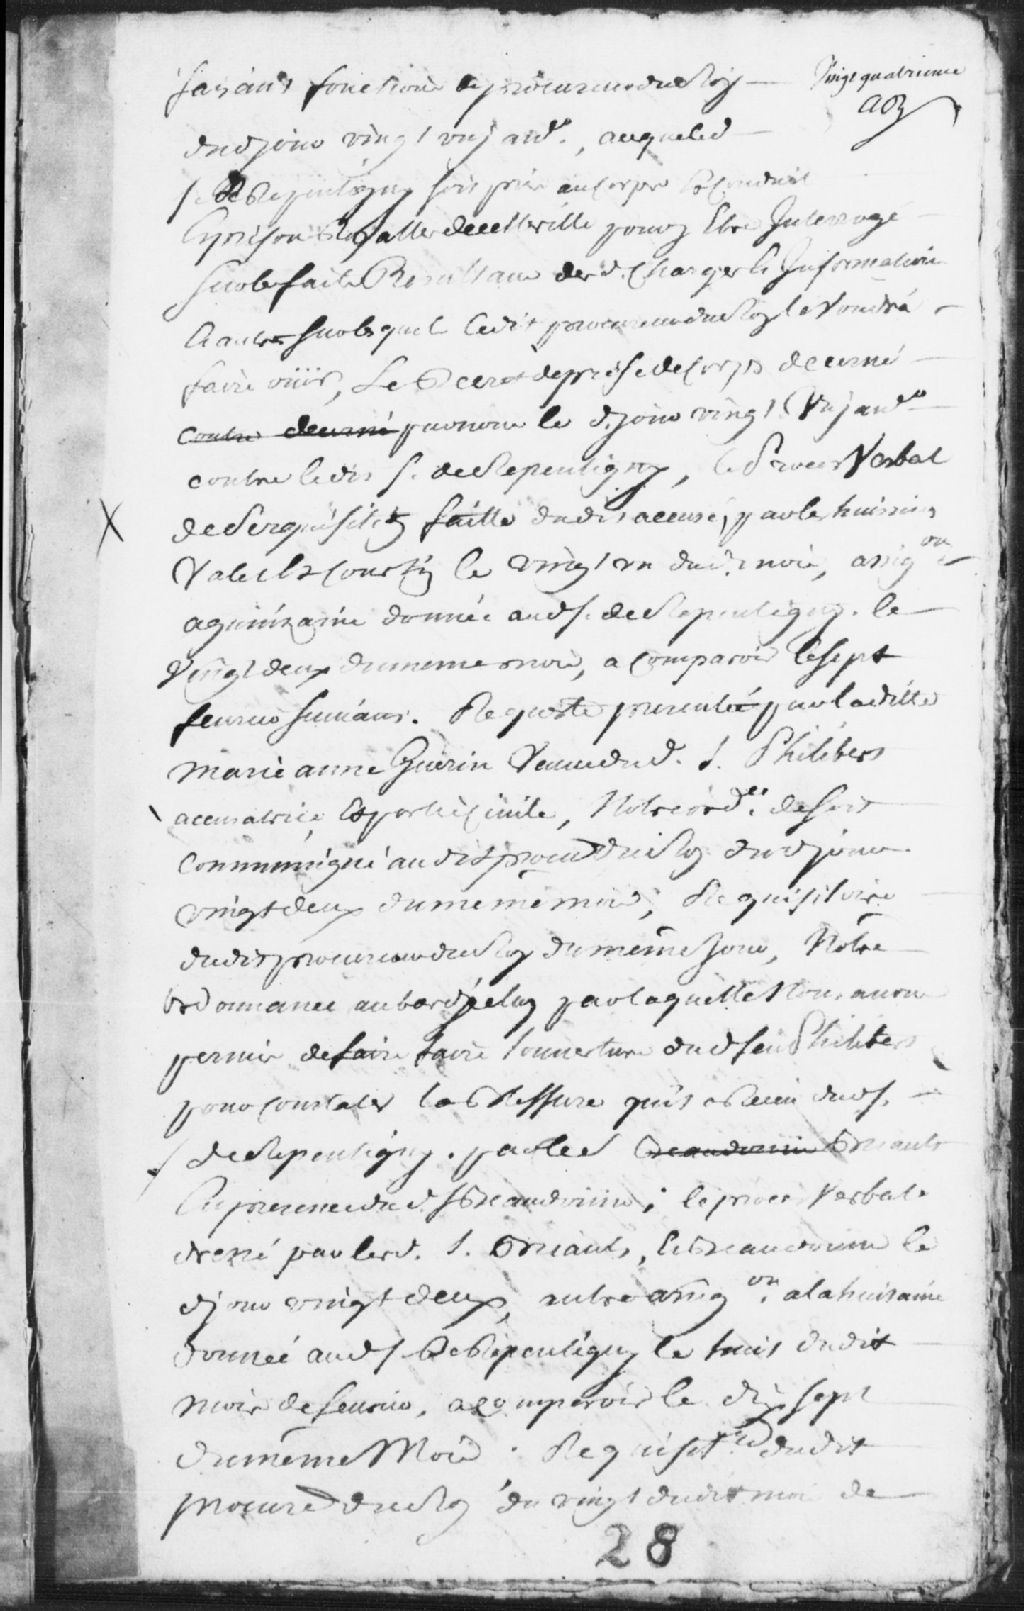 faisant fonction de procureur du Roy
Vingt quatrieme
dud jour vingt un jan.er, auquel led
s. De Repentigny sera pris au corps & conduit
Es prisons Royalles de cette ville pour y Estre Interrogé
Sur les faits Resultans des d. charges & Information
& autres sur lesquels ledit procureur du Roy le voudra
faire ouir, Le Decret de prise de corps decerné
contre decerné par nous le d. jour vingt Un jan.er
contre ledit s. de Repentigny, le Proces Verbal
de Perquisition faitte dudit accusé, par les huissiers
Valet & Courtin le vingt un dud. mois, assig.on
a quinzaine donnée aud s. de Repentigny. le
vingt deux du meme mois, a comparoir le sept
feuvrier suivant. Requeste presentée par laditte
marie anne Guérin Veuve du d. s. Philibert
accusatrice, & partie Civile, Notre ord.ce de soit
communiqué audit procur du Roy dud jour
vingt deux du meme mois, Requisitoire
dudit procureur du Roy du même Jour, Notre
ordonnance au bas d'jceluy par laquelle Nous avons
permis de faire faire l'ouverture dud feu Philibert
pour constater la Blessure qu'il a Receu dud s.
de Repentigny. par le s Beaudouin Briault
En presence du d s Beaudouin, le proces Verbal
dressé par les d. s. Briault, & Beaudouin le
d jour vingt deux, autre assig.on a la huitaine
donnée aud s de Repentigny le huit dudit
mois de feuvrier, a comparoir le dix sept
du même Mois. Requisit.re dudit
procureur du Roy du vingt dudit mois de
28